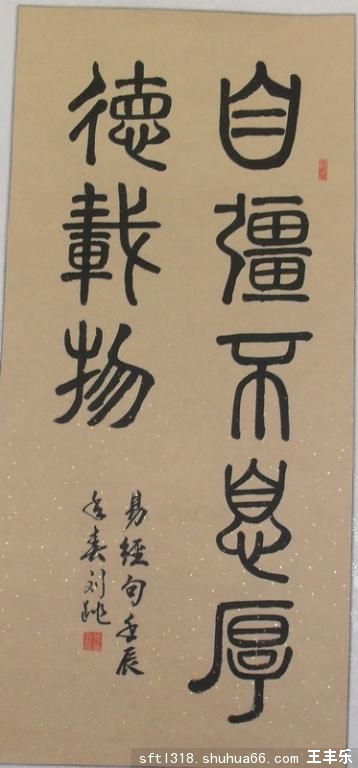 自彊不息厚
德載物
易經句壬辰
年春刘
sftl318.shuhua66.com 王丰乐